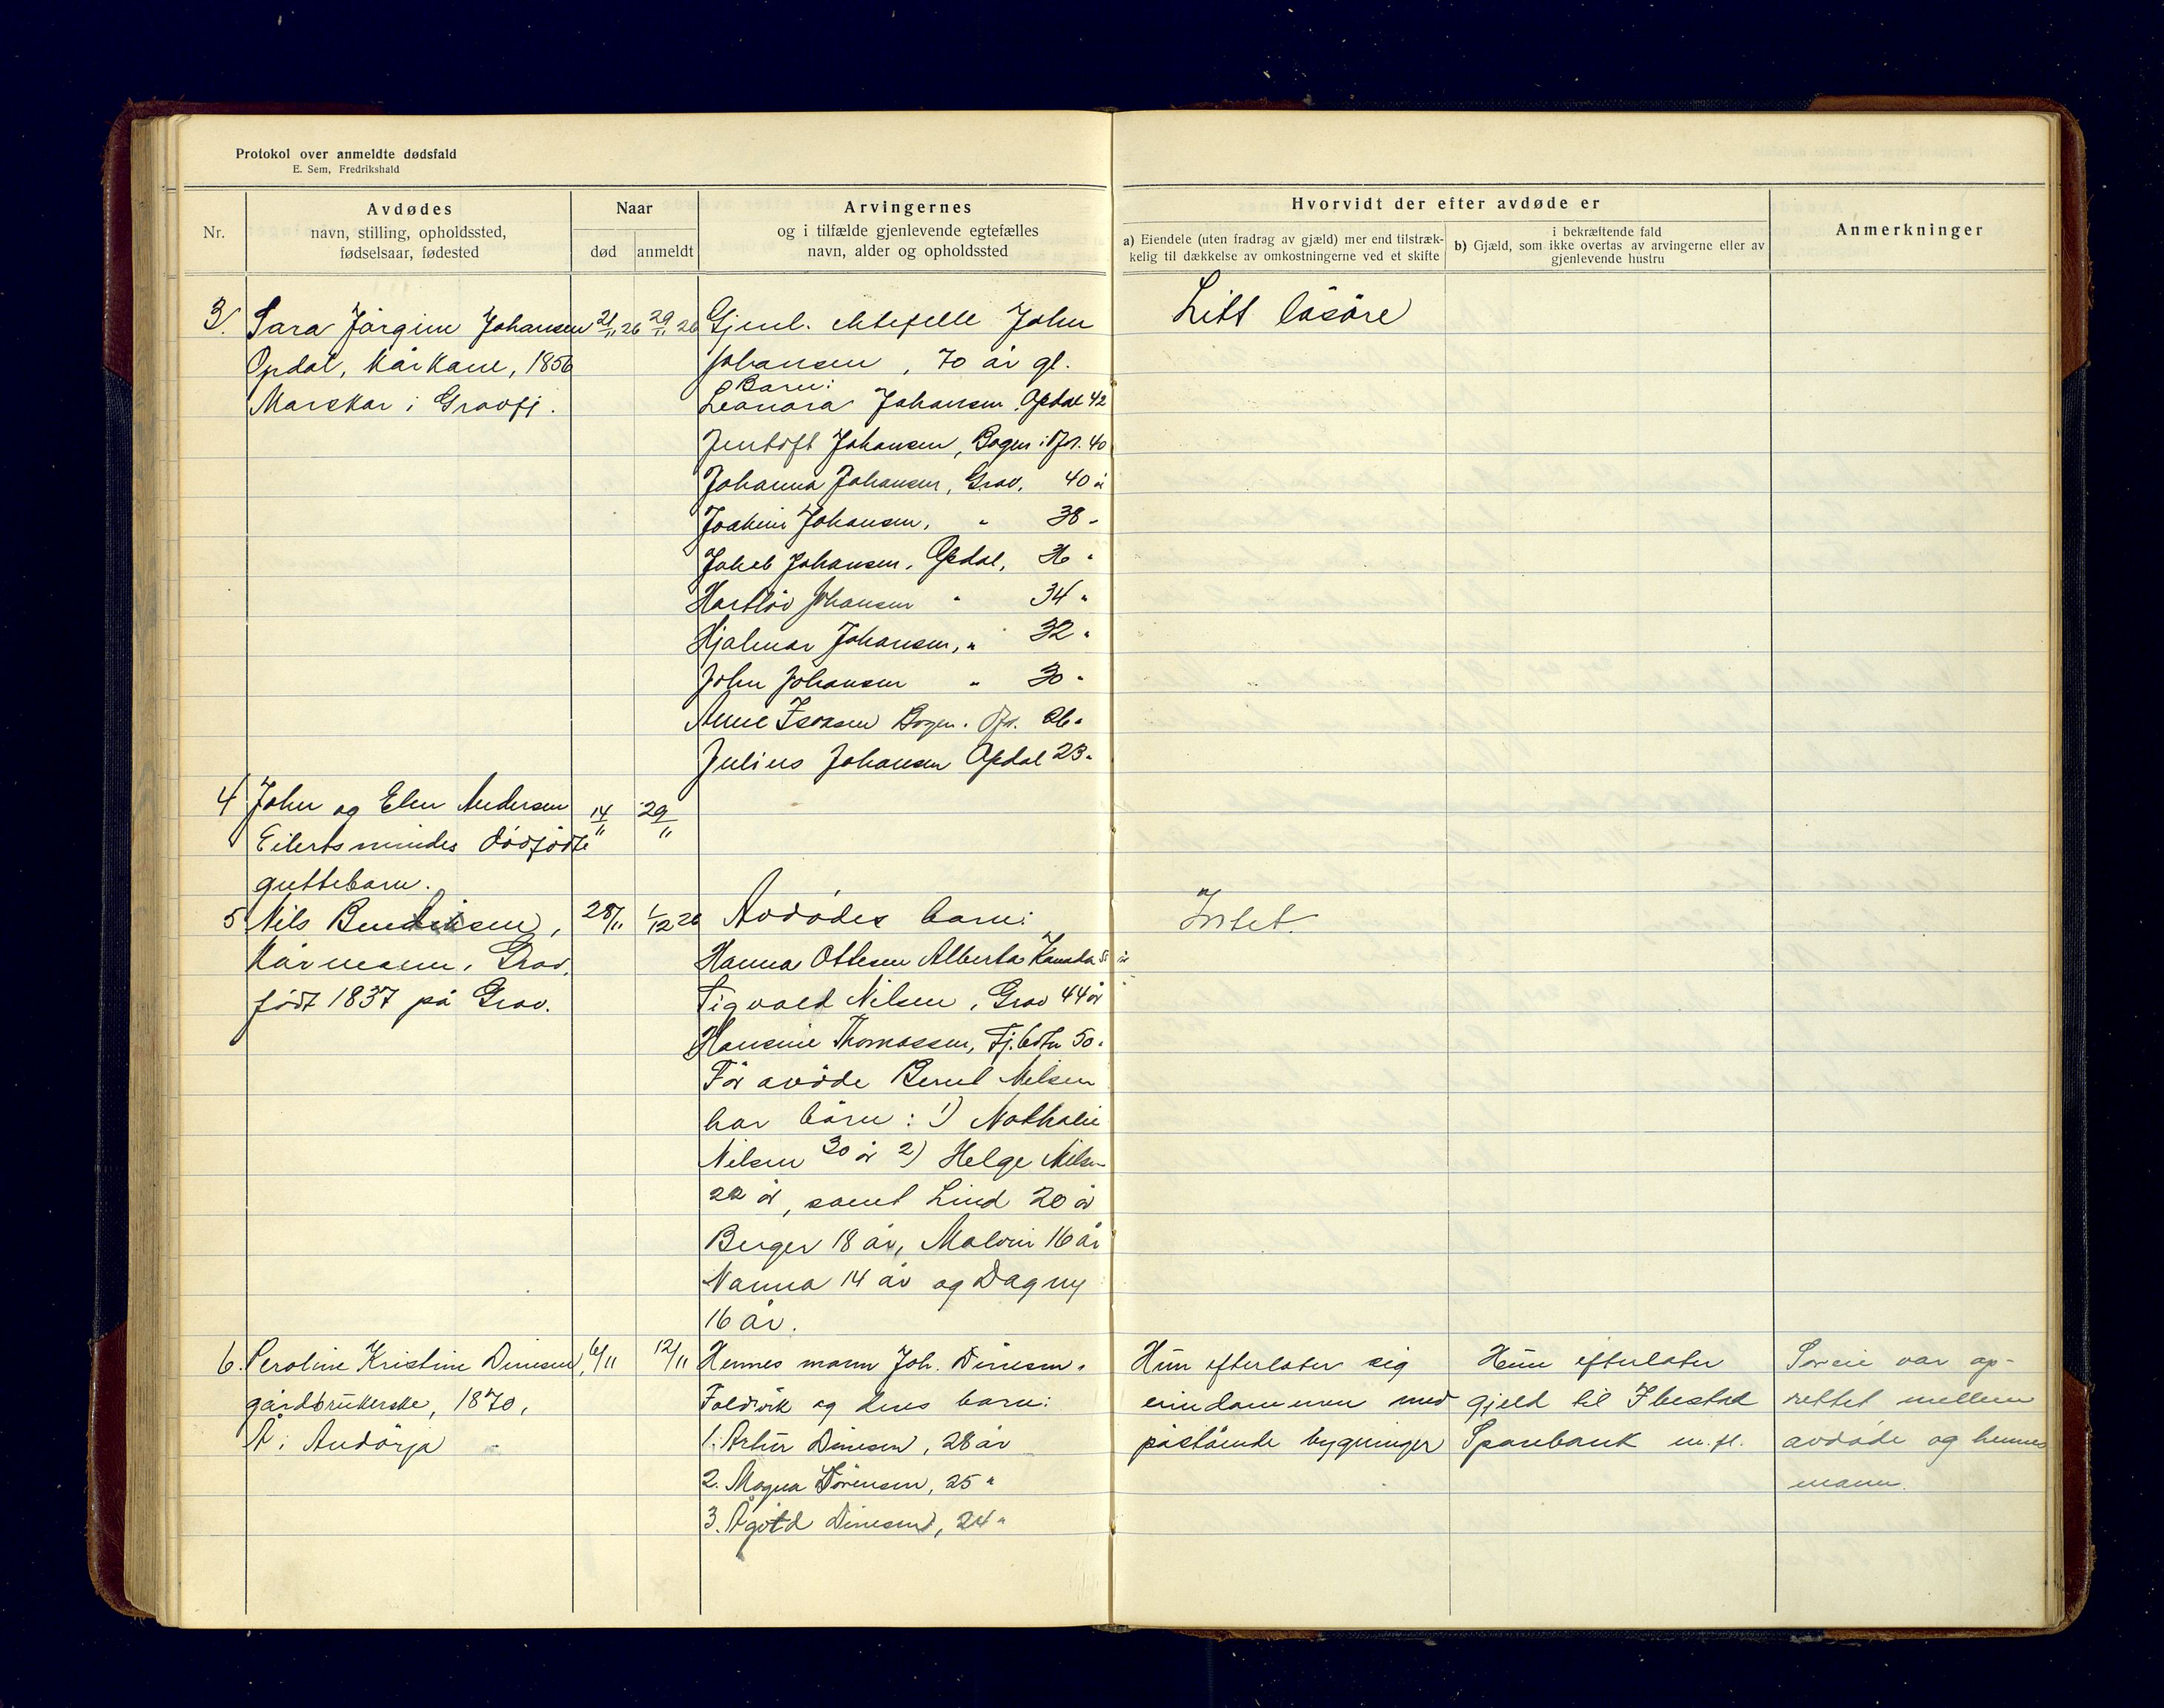 Protokol over anmeldte dødsfald
E. Sem, Fredrikshald
Nr.
Avdødes
navn, stilling, opholdssted,
fødselsaar, fødested
Naar
død
anmeldt
Arvingernes
og i tilfælde gjenlevende egtefælles
navn, alder og opholdssted
Hvorvidt der efter avdøde er
a) Eiendele (uten fradrag av gjæld) mer end tilstræk-
kelig til dækkelse av omkostningerne ved et skifte
i bekræftende fald
b) Gjæld, som ikke overtas av arvingerne eller av
gjenlevende hustru
Anmerkninger
3. Sara Jørgine Johansen 21/11 26 29/11 26
Opdal, kårkone, 1856
Marskar i Gravfj.
Gjenl. ektefelle John
Johansen, 70 år gl.
Barn:
Leonora Johansen. Opdal 42
Jentoft Johansen, Bogen i 40
Johanna Johansen, Grav, 40 å
Joakim Johansen, " 38 "
Jakob Johansen, Opdal, 36 "
Hartløv Johansen " 34 "
Hjalmar Johansen, " 32 "
John Johansen " 30 "
Anne Isaksen Bogen. 26 "
Julius Johansen Opdal 23 "
Litt løsøre
4 John og Elen Andersen 14/11 29/11
Eilertsmindes dødfødte
guttebarn.
5 Nils Bendiksen, 28/11 1/12 26
Kårmann, Grav,
født 1837 på Grav.
Avdødes barn:
Hanna Ottesen Alberta Kanada
Sigvald Nilsen, Grav 44 år
Hansine Thomassen, Fj.botn 50 "
Før avøde Bernt Nilsen
har børn: 1) Nathalie
Nilsen 30 år 2) Helge Nilsen
22 år, samt Lind 20 år
Berger 18 år, Malvin 16 år
Nanna 14 år og Dagny
16 år.
Intet.
6. Peroline Kristine Dinesen, 6/11 12/11
gårdbrukerske, 1870,
Å i Andørja
Hennes mann Joh. Dinesen,
Foldvik og deres barn:
1. Artur Dinesen, 28 år
2. Magna Sørensen, 25 "
3. Ågot Dinesen, 24 "
Hun efterlater sig
eiendommen med
påstående bygninger
Hun efterlater
gjeld til Ibestad
Sparebank m. fl.
Særeie var op-
rettet mellem
avdøde og hennes
mann.